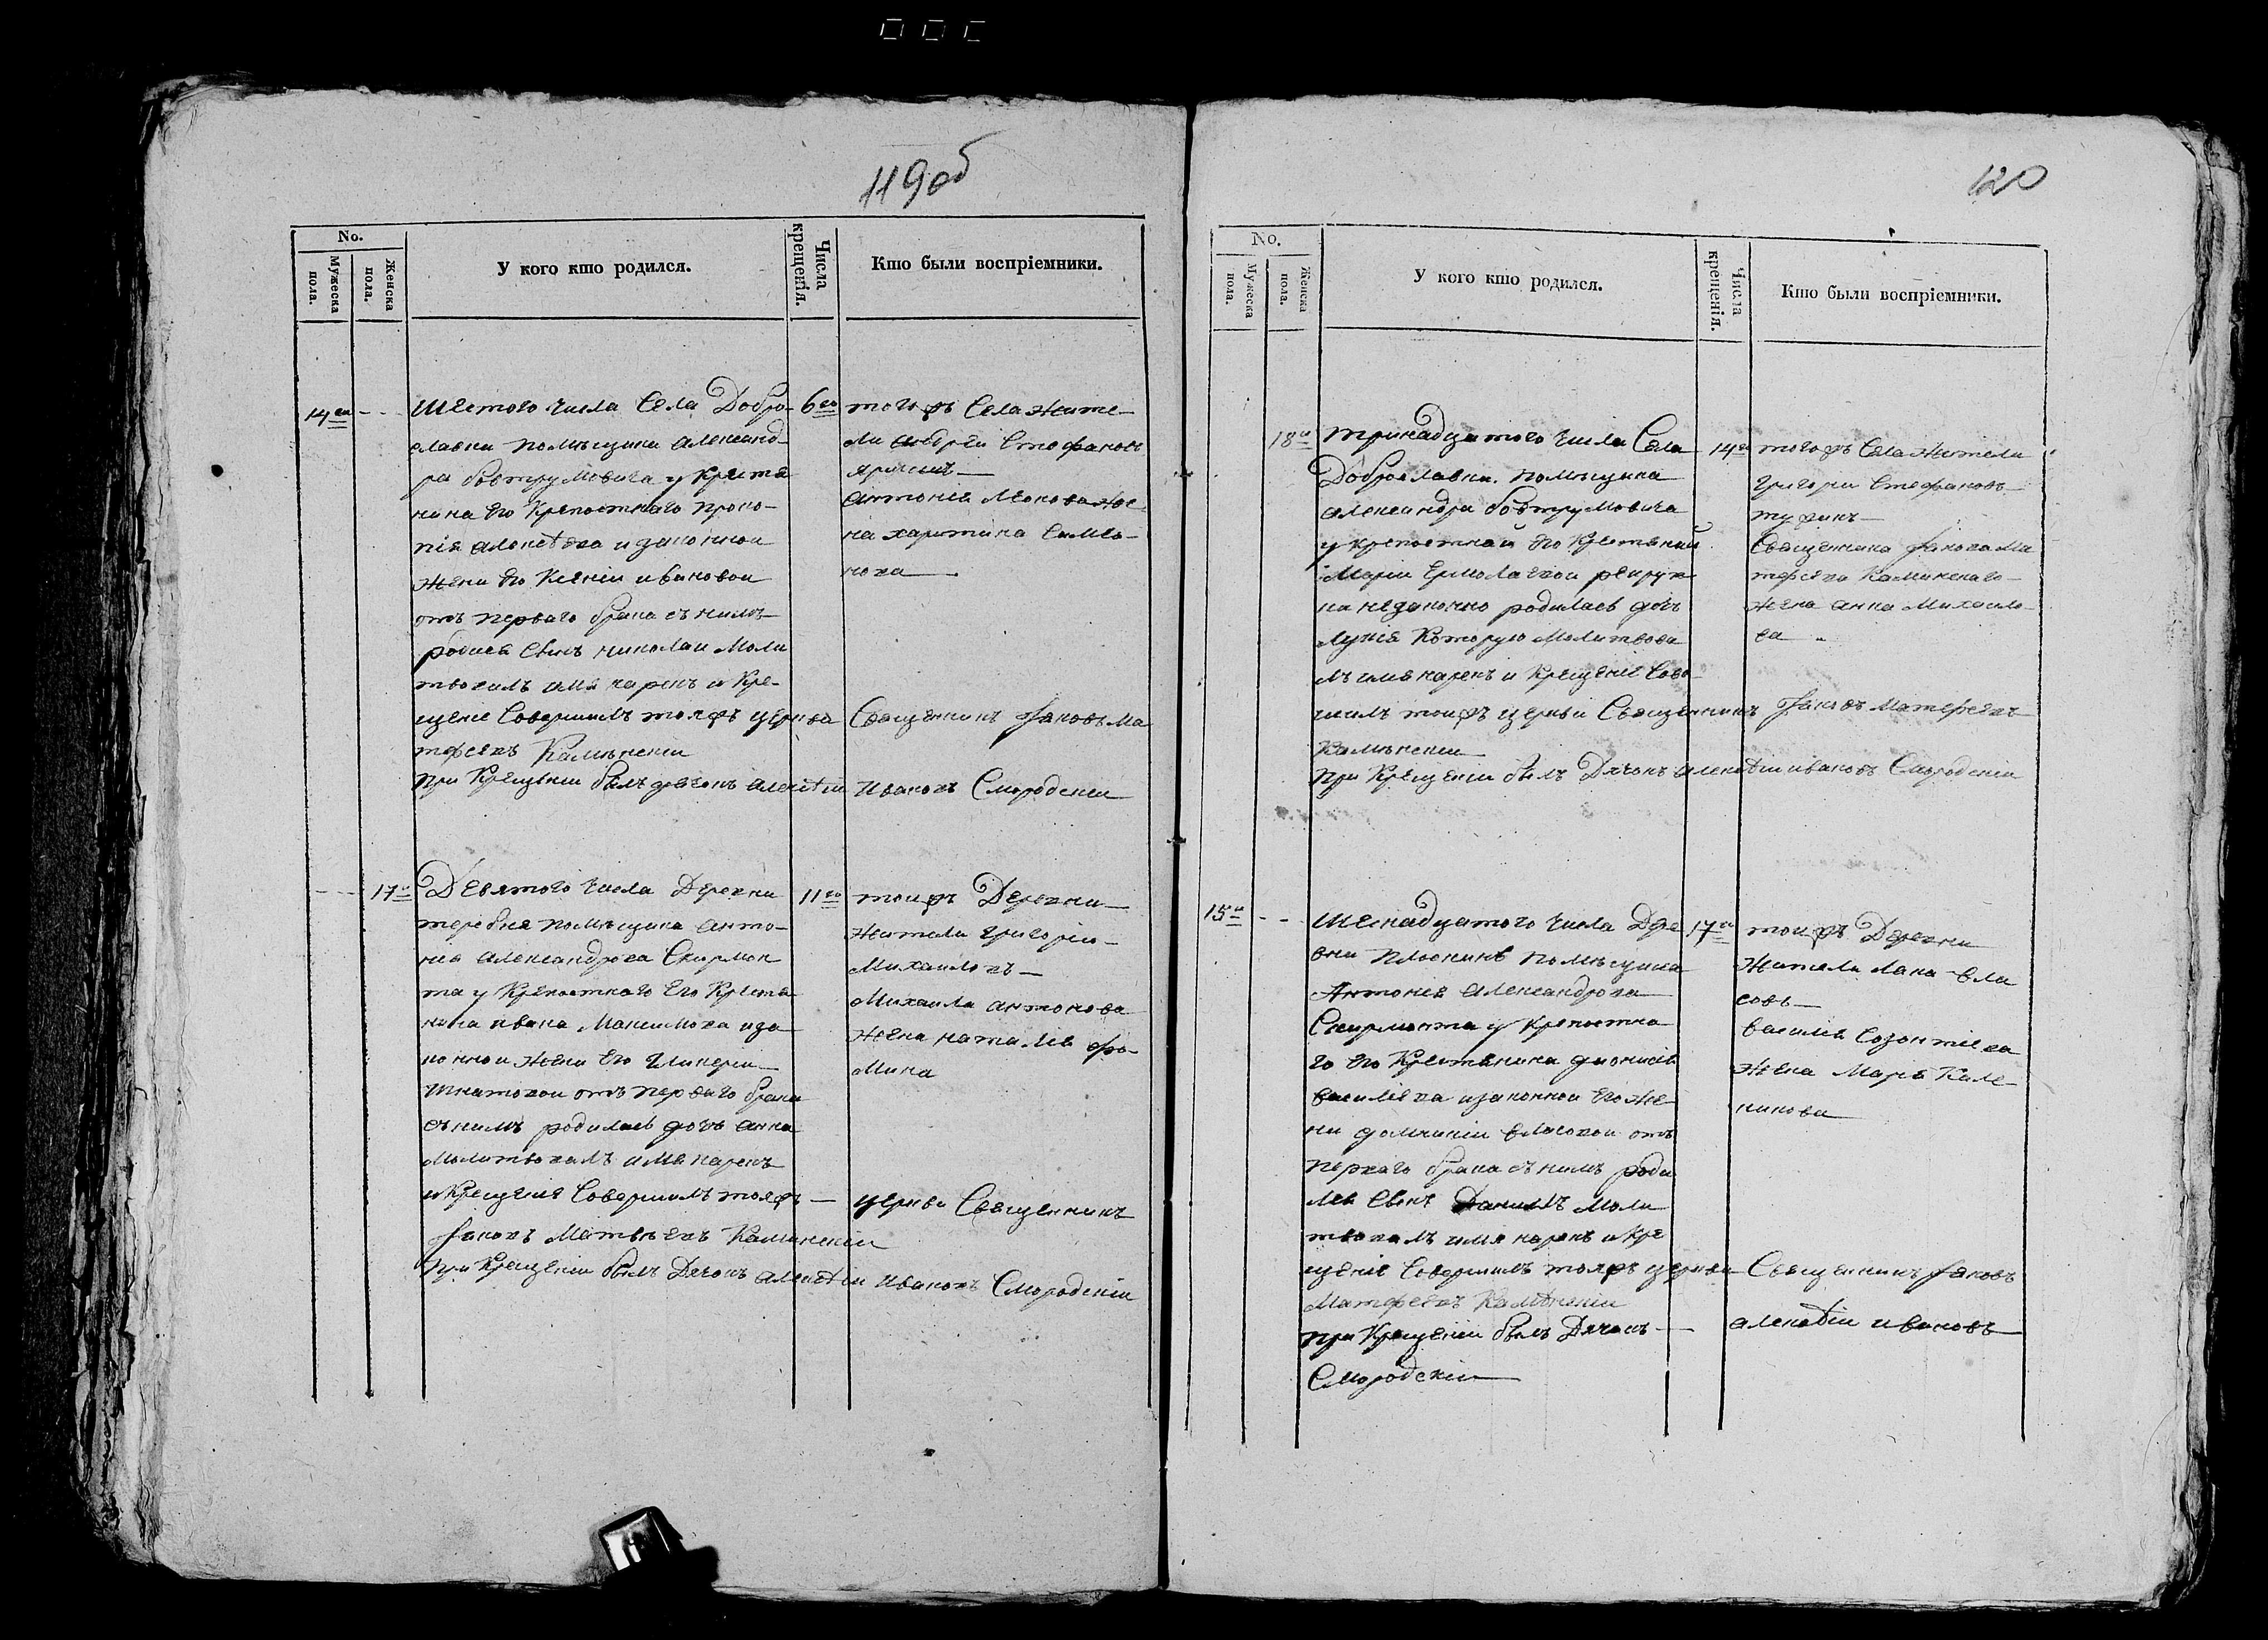 119об
No.
Мужеска пола.
Женска пола.
У кого кто родился.
Числа крещенія.
Кто были воспріемники.
14
Шестого числа Села Добро-
славки помѣщика александ-
ра бовтрумовича у Крестя
нина Его Крепостнаго проко-
пія алексѣева и законнои
жени Его Ксеніи ивановои
отъ перваго брака съ нимъ
родися Синъ николаи Моли
твовалъ имя нарекъ и Кре-
щеніе Совершилъ тояжъ церкви Священникъ Іяковъ Ма
тфеевъ Каминскіи
при Крещеніи билъ дячокъ алексѣіи Ивановъ Смородскіи
6го
тогожъ Села жите-
ли андреи Стефановъ
антонія леонова же-
на харитина Симео-
нова
17
Девятого числа Деревни
теребня помѣщика анто-
нія александрова Скирмон
та у Крепостного Его Крестя
нина ивана Максимова и за
коннои жени Его Гликеріи
Игнатовои отъ перваго брака
съ нимъ родилась дочъ анна
Молитвовалъ имя нарекъ
и Крещеніе Совершилъ тояжъ церкви Священникъ
Іяковъ Матвѣевъ Каминскіи
при Крещеніи билъ Дячокъ алексѣіи Ивановъ Смородскіи
11го
тоижъ Деревни
жители григоріи
Михаиловъ
Михаила антонова
жена наталія фо-
мина
120
No.
Мужеска пола.
Женска пола.
У кого кто родился.
Числа крещенія.
Кто были воспріемники.
18
Тринадцатого числа Села
Доброславки помѣщика
александра бовтрумовича
у крепостной Его Крестянки
Маріи Ермолаевои рекрут
ки незаконно родилась дочъ
Которую Молитвова
лъ имя нарекъ и Крещеніе Сове-
шилъ тоижъ церкви Священникъ Іяковъ Матфеевъ
Каминскіи
при Крещеніи билъ Дячокъ алексѣіи ивановъ Смородскіи
14
тогожъ Села жители
Григори Стефановъ
Священника Іякова Ма
тфеева Каминскаго
жена анна Михаило-
ва
15
Шеснадцатого числа Дере
вни Плоскинѣ помѣщика
Антонія Александрова
Скирмонта у крепостна
го Его Крестянина дионисія
василіева и законнои Его же
ни домникіи власовои отъ
перваго брака съ нимъ роди
лся Синъ Даниилъ Моли
твовалъ имя нарекъ и Кре
щеніе Совершилъ тояжъ церкви Священникъ Іяковъ
Матфеевъ Каминскіи
при Крещеніи билъ Дячокъ алексѣіи ивановъ
Смородскіи
17
тоижъ Деревни
жители лана вла
совъ
василія Созонтіева
жена Марія Кале-
никова